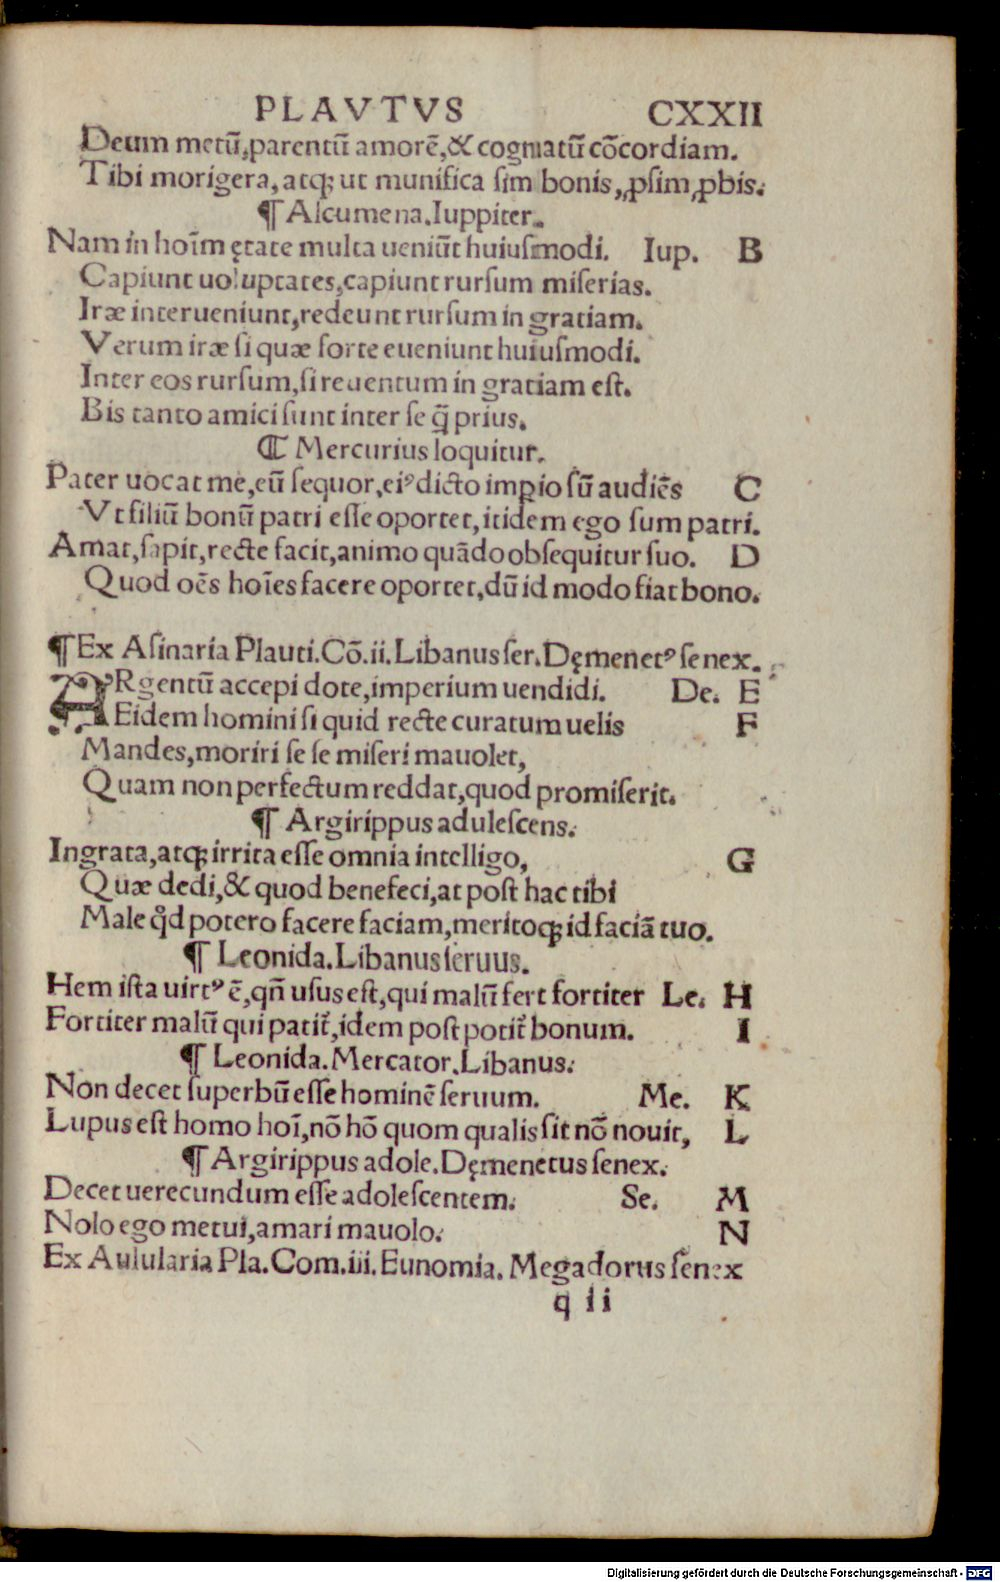 PLAVTVS CXXII
Deum metū,parentū amorē,& cognatū cōcordiam.
Tibi morigera, atqꝫ ut munifica ſim bonis, ꝓſim ꝓbis.
¶ Alcumena.Iuppiter.
Nam in hoīm ętate multa ueniūt huiuſmodi. Iup. B
Capiunt uoluptates,capiunt rurſum miſerias.
Iræ interueniunt,redeunt rurſum in gratiam.
Verum iræ ſi quæ forte eueniunt huiuſmodi.
Inter eos rurſum,ſi reuentum in gratiam eſt.
Bis tanto amici ſunt inter ſe q̄ prius.
¶ Mercurius loquitur.
Pater uocat me,eū ſequor.eiꝰ dicto imꝑio ſū audiēs C
Vt filiū bonū patri eſſe oportet,itidem ego ſum patri.
Amat,ſapit,recte facit,animo quādo obſequitur ſuo. D
Quod oēs hoīes facere oportet,dū id modo fiat bono.
¶ Ex Aſinaria Plauti.Cō.ii.Libanus ſer.Dęmenetꝰ ſenex.
ARgentū accepi dote,imperium uendidi. De. E
¶. Eidem homini ſi quid recte curatum uelis F
Mandes,moriri ſe ſe miſeri mauolet,
Quam non perfectum reddat,quod promiſerit.
¶ Argirippus aduleſcens.
Ingrata,atqꝫ irrita eſſe omnia intelligo, G
Quæ dedi,& quod benefeci,at poſt hac tibi
Male qͥd potero facere faciam,meritoqꝫ id faciā tuo.
¶ Leonida.Libanus ſeruus.
Hem iſta uirtꝰ ē,qn̄ uſus eſt,qui malū fert fortiter Le. H
Fortiter malū qui patit̄,idem poſt potit̄ bonum. I
¶ Leonida.Mercator.Libanus.
Non decet ſuperbū eſſe hominē ſeruum. Me. K
Lupus eſt homo hoī,nō hō quom qualis ſit nō nouit, L
¶ Argirippus adole.Dęmenetus ſenex.
Decet uerecundum eſſe adoleſcentem. Se. M
Nolo ego metui,amari mauolo. N
Ex Aulularia Pla.Com.iii.Eunomia. Megadorus ſenex
q ii
Digitalisierung gefördert durch die Deutsche Forschungsgemeinschaft - DFG